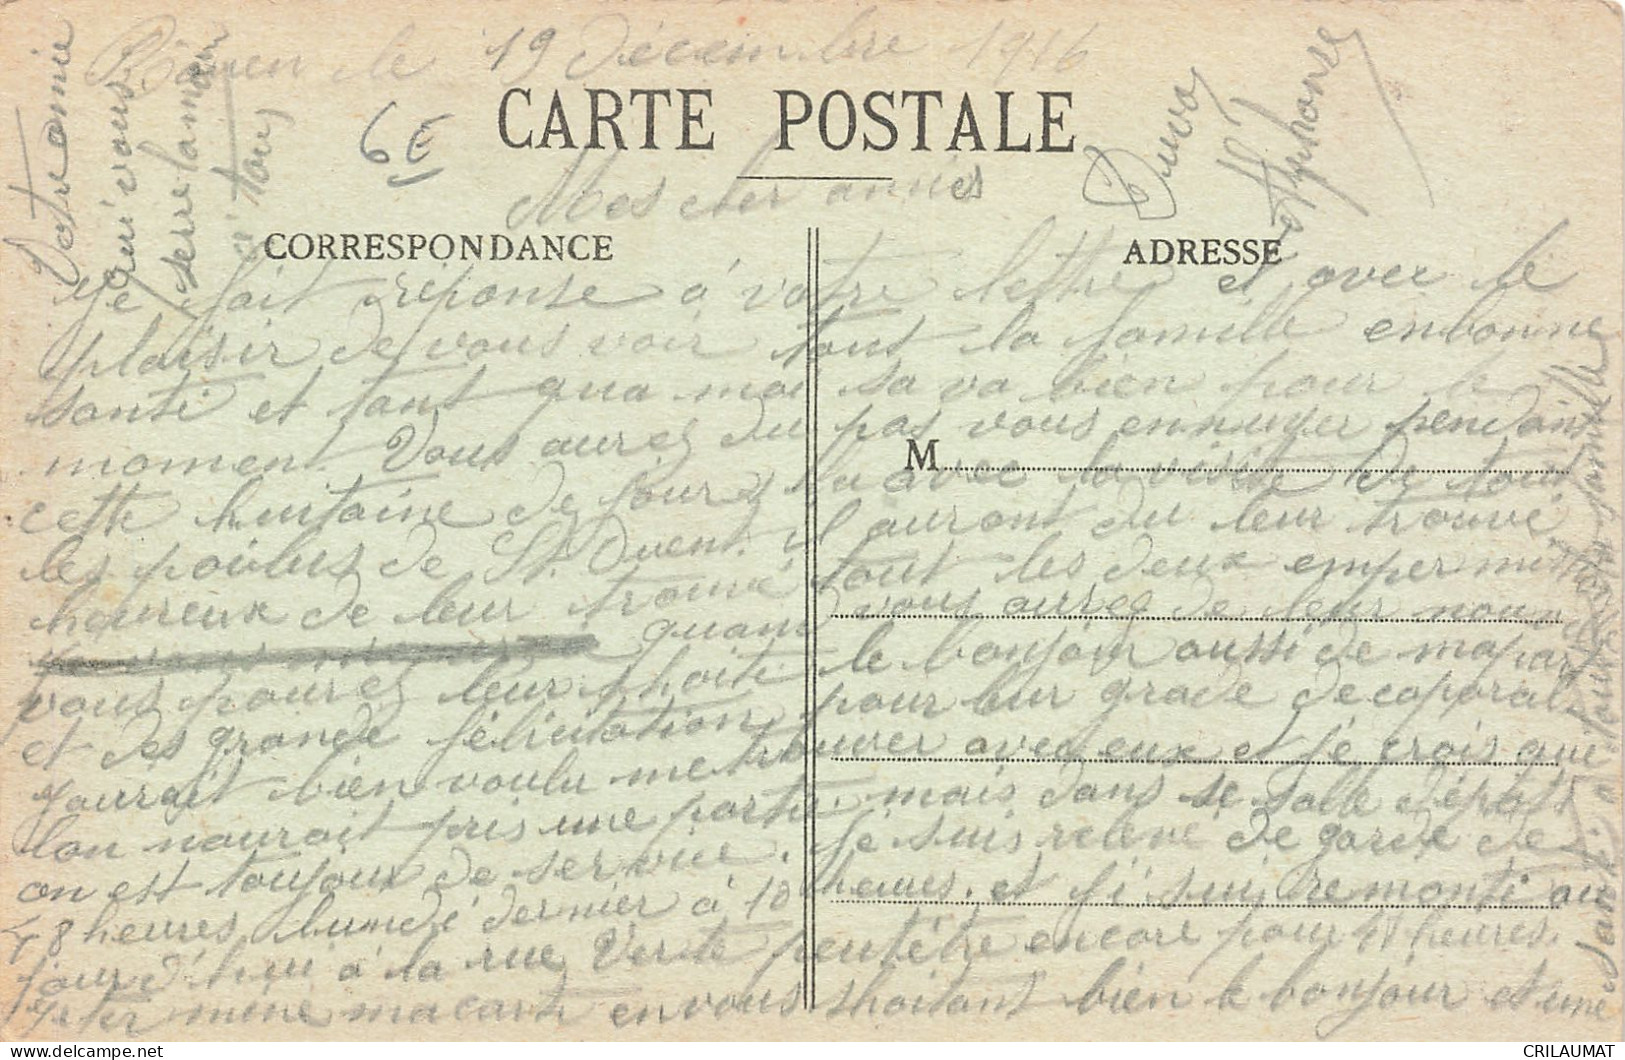 Rouen le 19 Décembre 1916
6E
CARTE POSTALE
Mes cher amies
CORRESPONDANCE
ADRESSE
M
Je fait réponse a votre lettre et avec le
plaisir de vous voir tout la famille enbonne
santé et tant qua moi sa va bien pour le
moment. Vous aurez du pas vous ennuyer pendant
cette huitaine de jours la avec la visite de tout
les poilus de St. Ouent. il auront du leur trouvé
heureux de leur trouvé tout les deux en permi
quand vous aurez de leur nouv
vous pourez leur shoité le bonjour aussi de mapart
et des grande félicitation pour leur grade de caporal
jaurait bien voulu me trouver avec eux et je crois que
lon naurait pris une partie. mais dans se salle dépôt
on est toujour de service. Je suis relevé de garde de
48 heures lundi dernier à 18 heures. et j'i suis remonté au
jourd'hui a la rue Verte peutêtre encore pour 48 heures.
Je termine ma carte en vous shoitant bien le bonjour et une
santé a toute la famille
Votre amie
qui vous
serre la main
a tous
Duval
Alphonse
CRILAUMAT